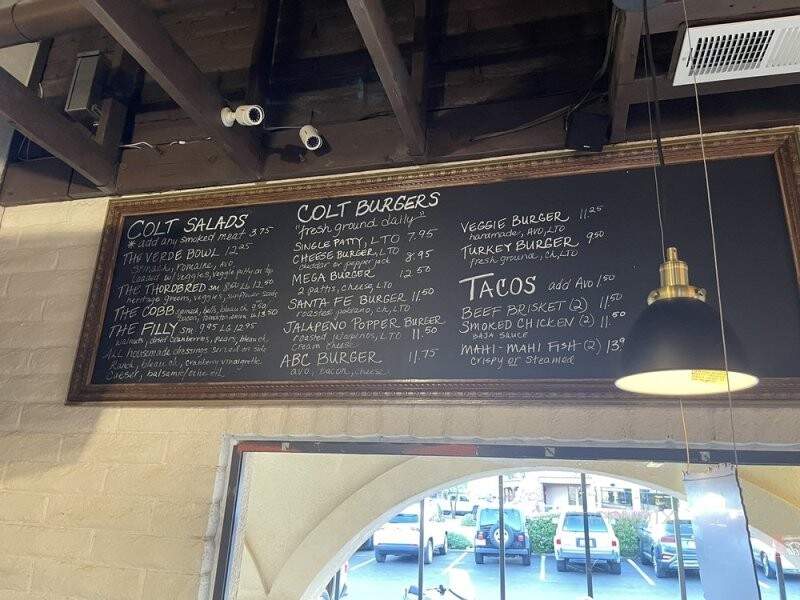 COLT SALADS
* add any smoked meat 3.75
THE VERDE BOWL 12.25
spinach, romaine, mix,
loaded w/ veggies, veggie patty on top
THE THORDBRED sm 8.00 LG 12.50
heritage greens, veggies, sunflower seeds
THE COBB
bacon, tomato, onion LG 13.50
THE FILLY sm 9.95 LG 12.95
walnuts, dried cranberries, pears, bleu ch
ALL housemade dressings served on side
Ranch, bleu ch, cranberry vinaigrette
Caesar, balsamic/olive oil
COLT BURGERS
"fresh ground daily"
SINGLE PATTY, LTO 7.95
CHEESE BURGER, LTO 8.95
cheddar or pepperjack
MEGA BURGER 12.50
2 pattis, cheese, LTO
SANTA FE BURGER 11.50
roasted poblano, ch, LTO
JALAPENO POPPER BURGER
roasted jalapenos, LTO 11.50
cream cheese
ABC BURGER 11.75
avo, bacon, cheese
VEGGIE BURGER 11.25
handmade, AVO, LTO
TURKEY BURGER 9.50
fresh ground, ch, LTO
TACOS add Avo 1.50
BEEF BRISKET (2) 11.50
SMOKED CHICKEN (2) 11.50
BAJA SAUCE
MAHI-MAHI FISH (2)
crispy or steamed